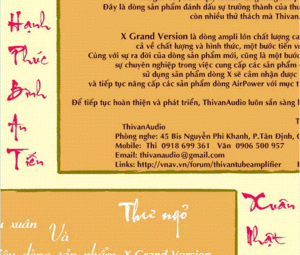 Đây là dòng sản phẩm đánh dấu sự trưởng thành của thư
còn nhiều thử thách mà Thivan
X Grand Version là dòng ampli lớn chất lượng ca
cả về chất lượng và hình thức, một bước tiến v
Cùng với sự ra đời của dòng sản phẩm mới, cũng là một bước
sự chuyên nghiệp trong việc cung cấp các sản phẩm
sử dụng sản phẩm dòng X sẽ cảm nhận được
và tiếp tục nâng cấp các sản phẩm dòng AirPower với mục t
Để tiếp tục hoàn thiện và phát triển, ThivanAudio luôn sẵn sàng l
Hạnh
Phúc
Bình
An
Tiến
ThivanAudio
Phòng nghe: 45 Bis Nguyễn Phi Khanh, P.Tân Định, Q
Mobile: Thi 0918 699 361 Vân 0906 500 957
Email: thivanaudio@gmail.com
Links: http://vnav.vn/forum/thivantubeamplifier
Thư ngỏ
xuân
Và
dòng sản phẩm X Grand Version
Xuân
Nhật